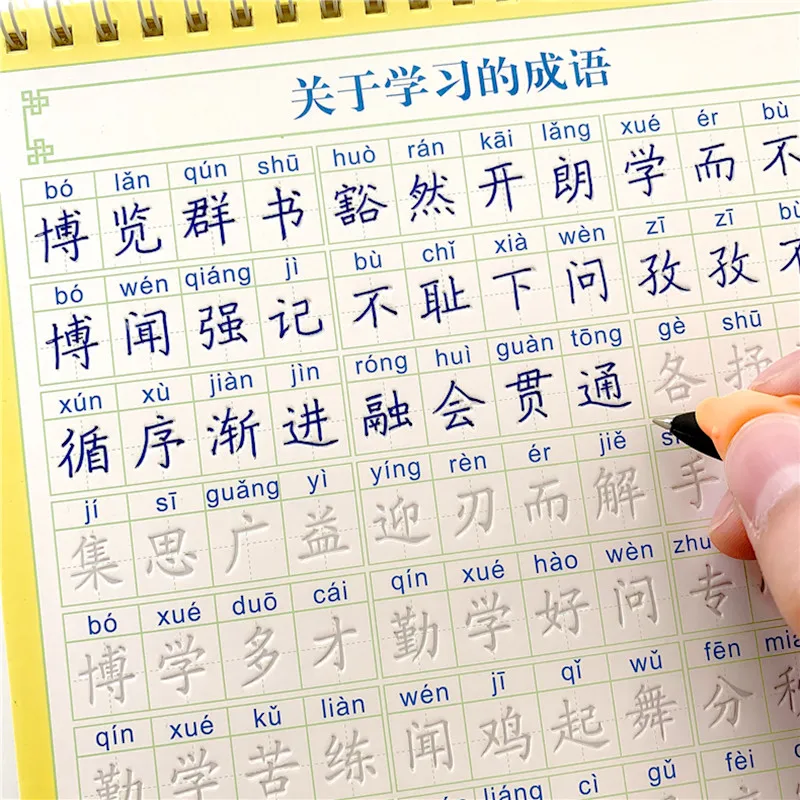 关于学习的成语
bó lǎn qún shū huò rán kāi lǎng xué ér bù
博览群书豁然开朗学而不
bó wén qiáng jì bù chǐ xià wèn zī zī bù
博闻强记不耻下问孜孜不
xún xù jiàn jìn róng huì guàn tōng gè shū
循序渐进融会贯通各抒
jí sī guǎng yì yíng rèn ér jiě
集思广益迎刃而解手
bó xué duō cái qín xué hào wèn
博学多才勤学好问专
qín xué kǔ liàn wén jī qǐ wǔ fēn
勤学苦练闻鸡起舞分
liáng cì gǔ fèi